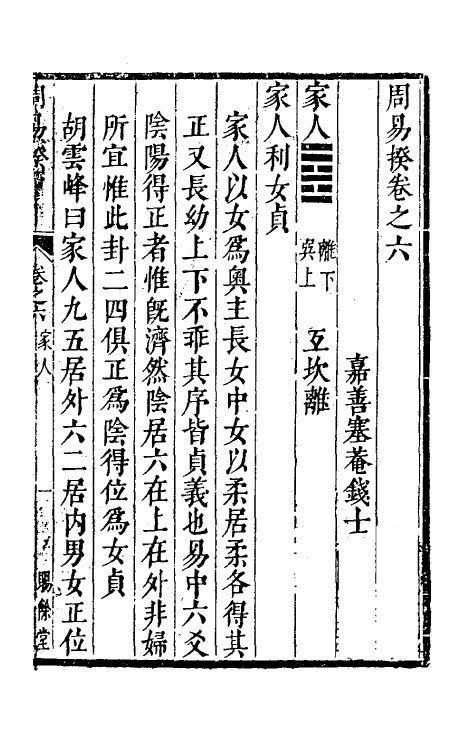 周易揆卷之六
嘉善塞菴錢士
家人䷤離下巽上 互坎離
家人利女貞
家人以女爲奧主長女中女以柔居柔各得其
正又長幼上下不乖其序皆貞義也易中六爻
陰陽得正者惟旣濟然陰居六在上在外非婦
所宜惟此卦二四俱正爲陰得位爲女貞
胡雲峰曰家人九五居外六二居内男女正位
周易揆 卷之六 家人 一 賜餘堂